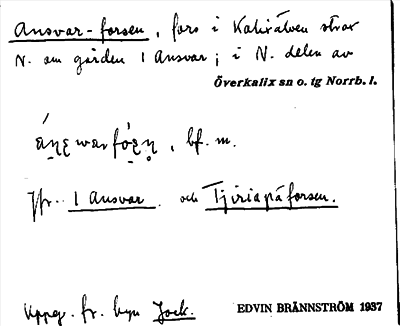 Ansvar-forsen, fors i Kalixälven strax
N. om gården 1 Ansvar; i N. delen av
Överkalix sn o. tg Norrb. l.
bf. m.
Jfr. 1 Ansvar och Tjiriapåforsen.
Uppg. fr. byn Jock. EDVIN BRÄNNSTRÖM 1937